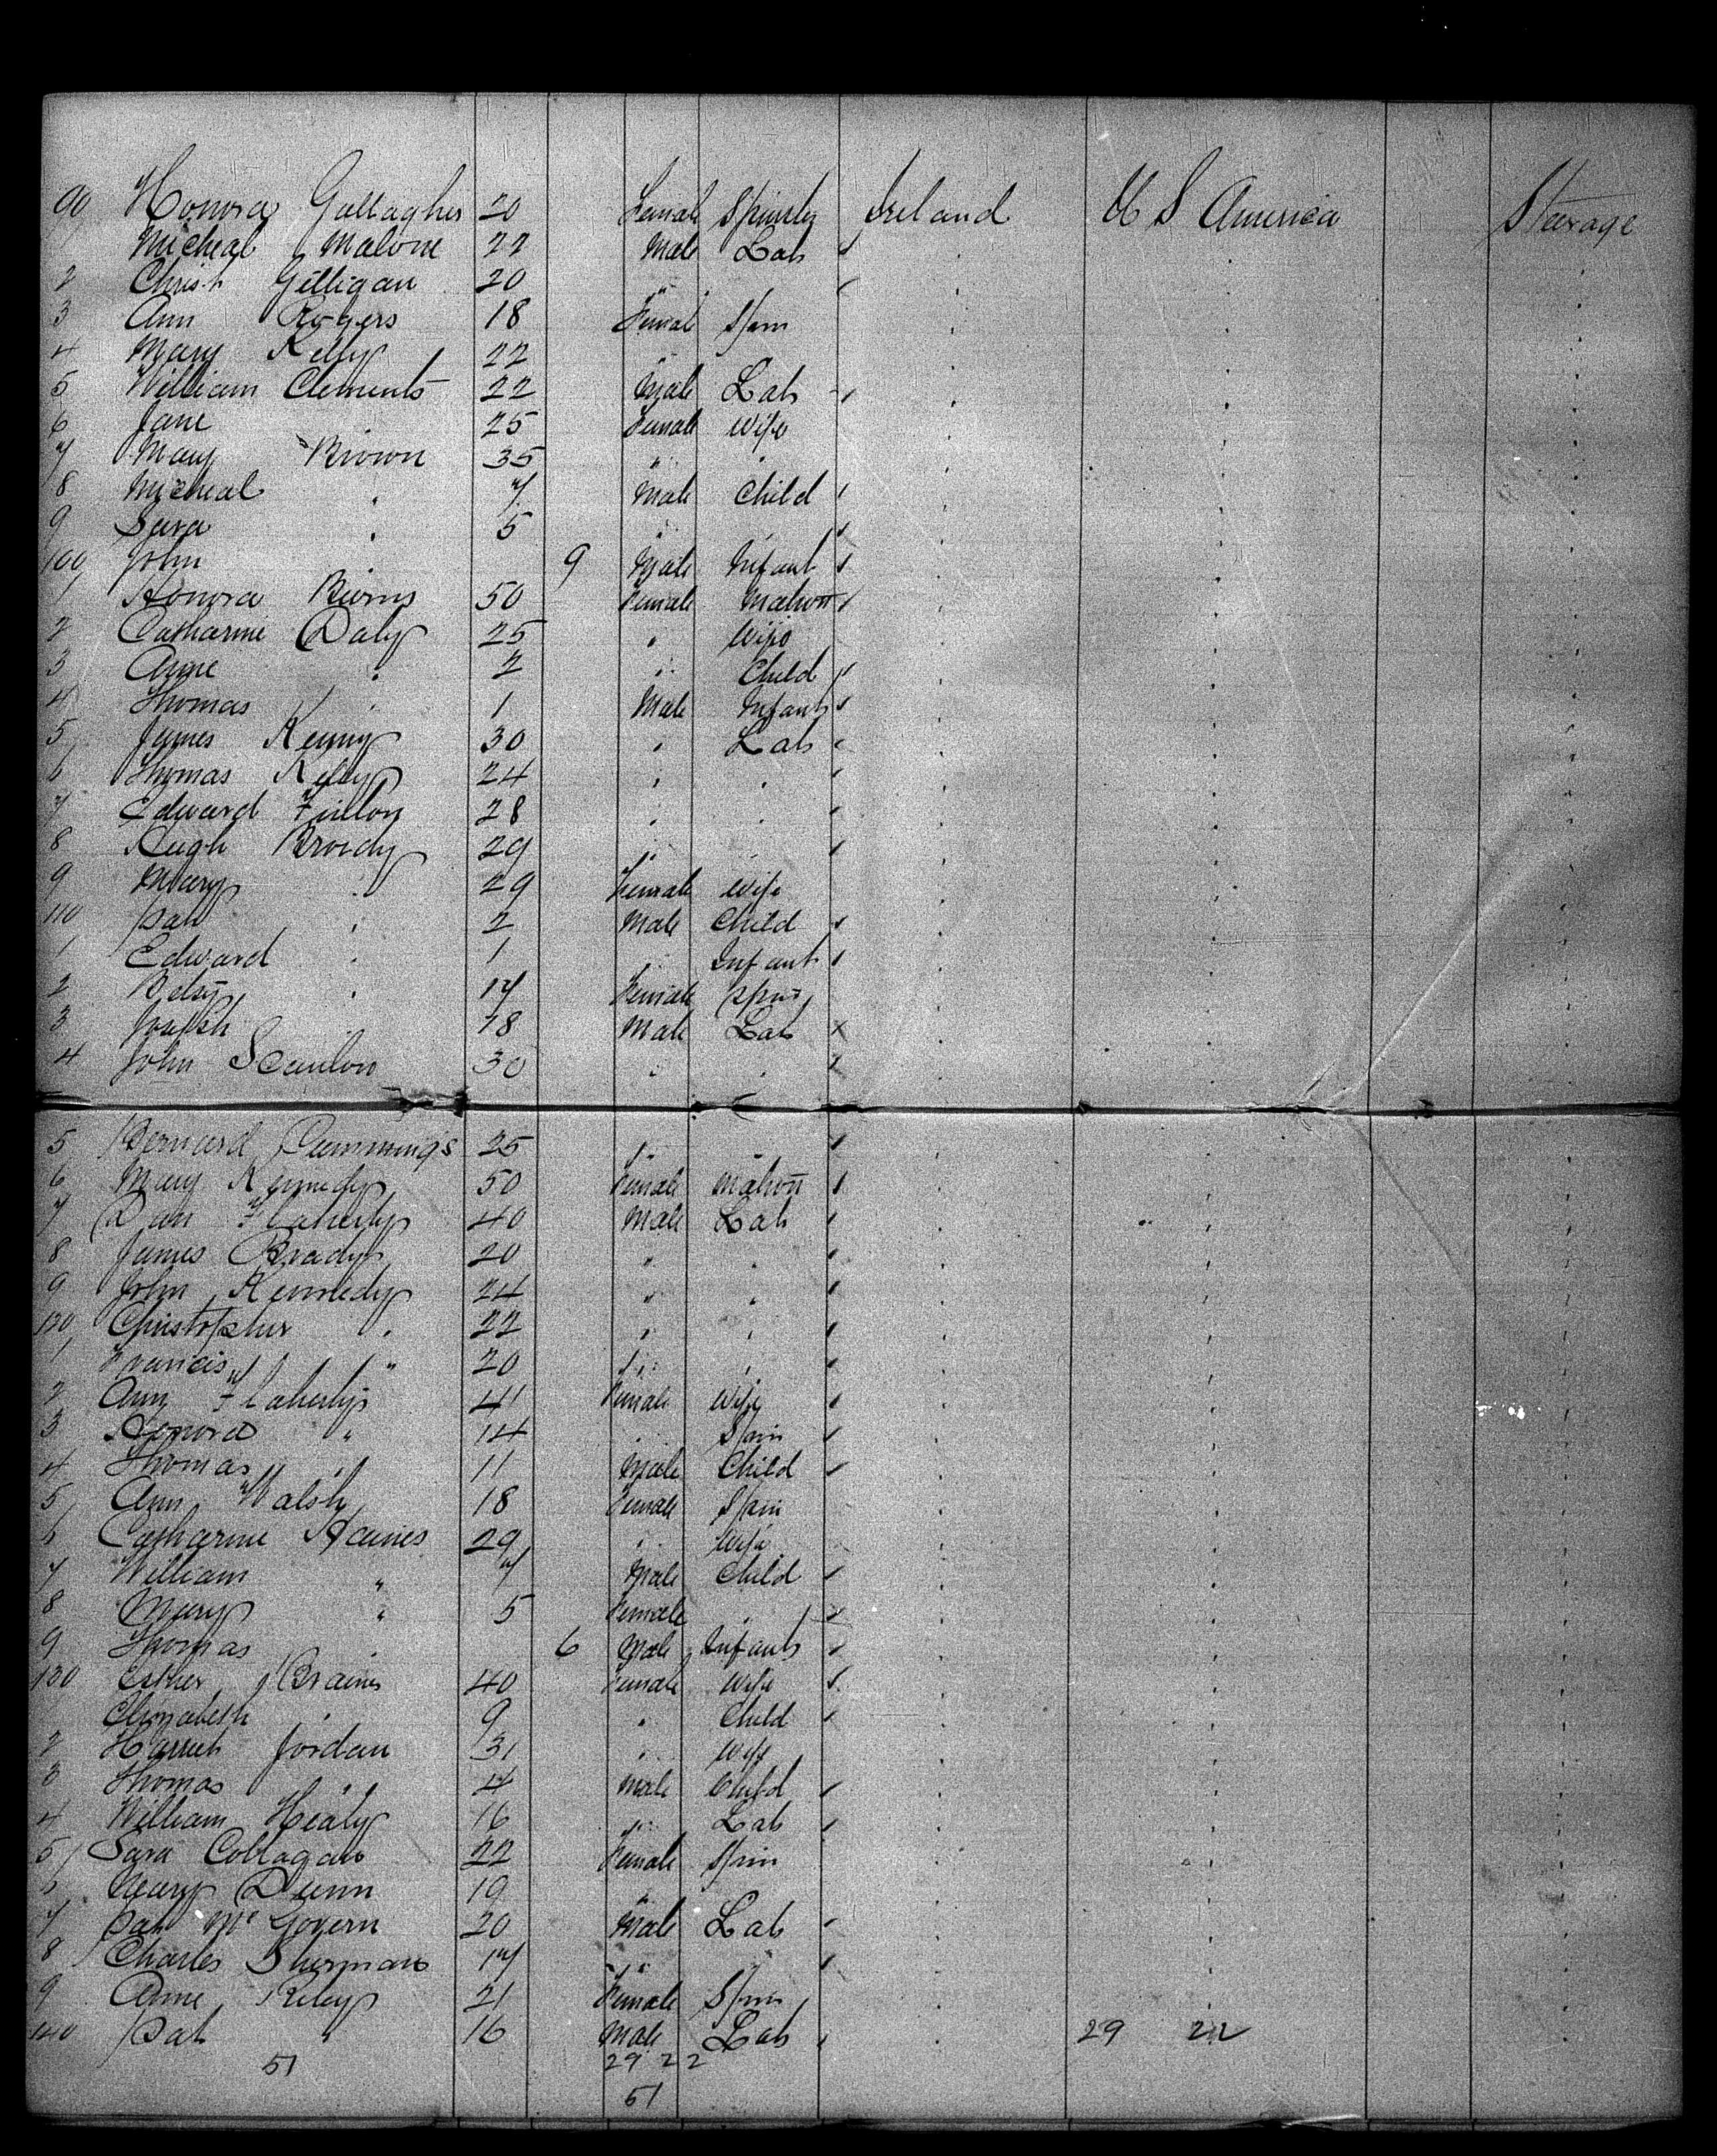 90 Honora Gallagher 20 Female Spinster Ireland U S America Steerage
Micheal Malone 22 Male Lab
2 Christ Gilligan 20 "
3 Ann Rogers 18 Female Spin
4 Mary Kelly 22 "
5 William Clements 22 Male Lab
6 Jane 25 Female Wife
7 Mary Brown 35 "
8 Micheal " 7 Male Child
9 Sara " 5 "
100 John 9 Male Infant
1 Honora 50 Female
2 Catharine Daly 25 " Wife
3 Anne " 2 " Child
4 Thomas 1 Male Infant
5 James Kenny 30 " Lab
6 Thomas Kelly 24 " "
7 Edward 28 " "
8 Hugh Brody 29 " "
9 Mary " 29 Female Wife
110 Pat " 2 Male Child
1 Edward " 1 Infant
2 Betsy " 17 Female Spin
3 Joseph 18 Male Lab
4 John Scanlon 30 " "
5 Bernard Cummings 25 " "
6 Mary Kennedy 50 Female
7 Dan Flaherty 40 Male Lab
8 James Brady 20 " "
9 John Kennedy 24 " "
120 Christopher " 22 " "
1 Francis " 20 " "
2 Ann Flaherty 41 Female Wife
3 Honora " 14 " Spin
4 Thomas " 11 Male Child
5 Ann Walsh 18 Female Spin
6 Catharine Haines 29 " Wife
7 William " 7 Male Child
8 Mary " 5 Female "
9 Thomas 6 Male Infant
130 Esther 40 Female Wife
Elizabeth " 9 " Child
2 Harriet Jordan 31 " Wife
3 Thomas " 4 Male Child
4 William Healy 16 " Lab
5 Sara Collagan 22 Female Spin
6 Mary Dunn 19 "
7 Pat McGovern 20 Male Lab
8 Charles Sherman 17 " "
9 Anne Riley 21 Female Spin
140 Pat " 16 Male Lab 29 22
51 29 22
51